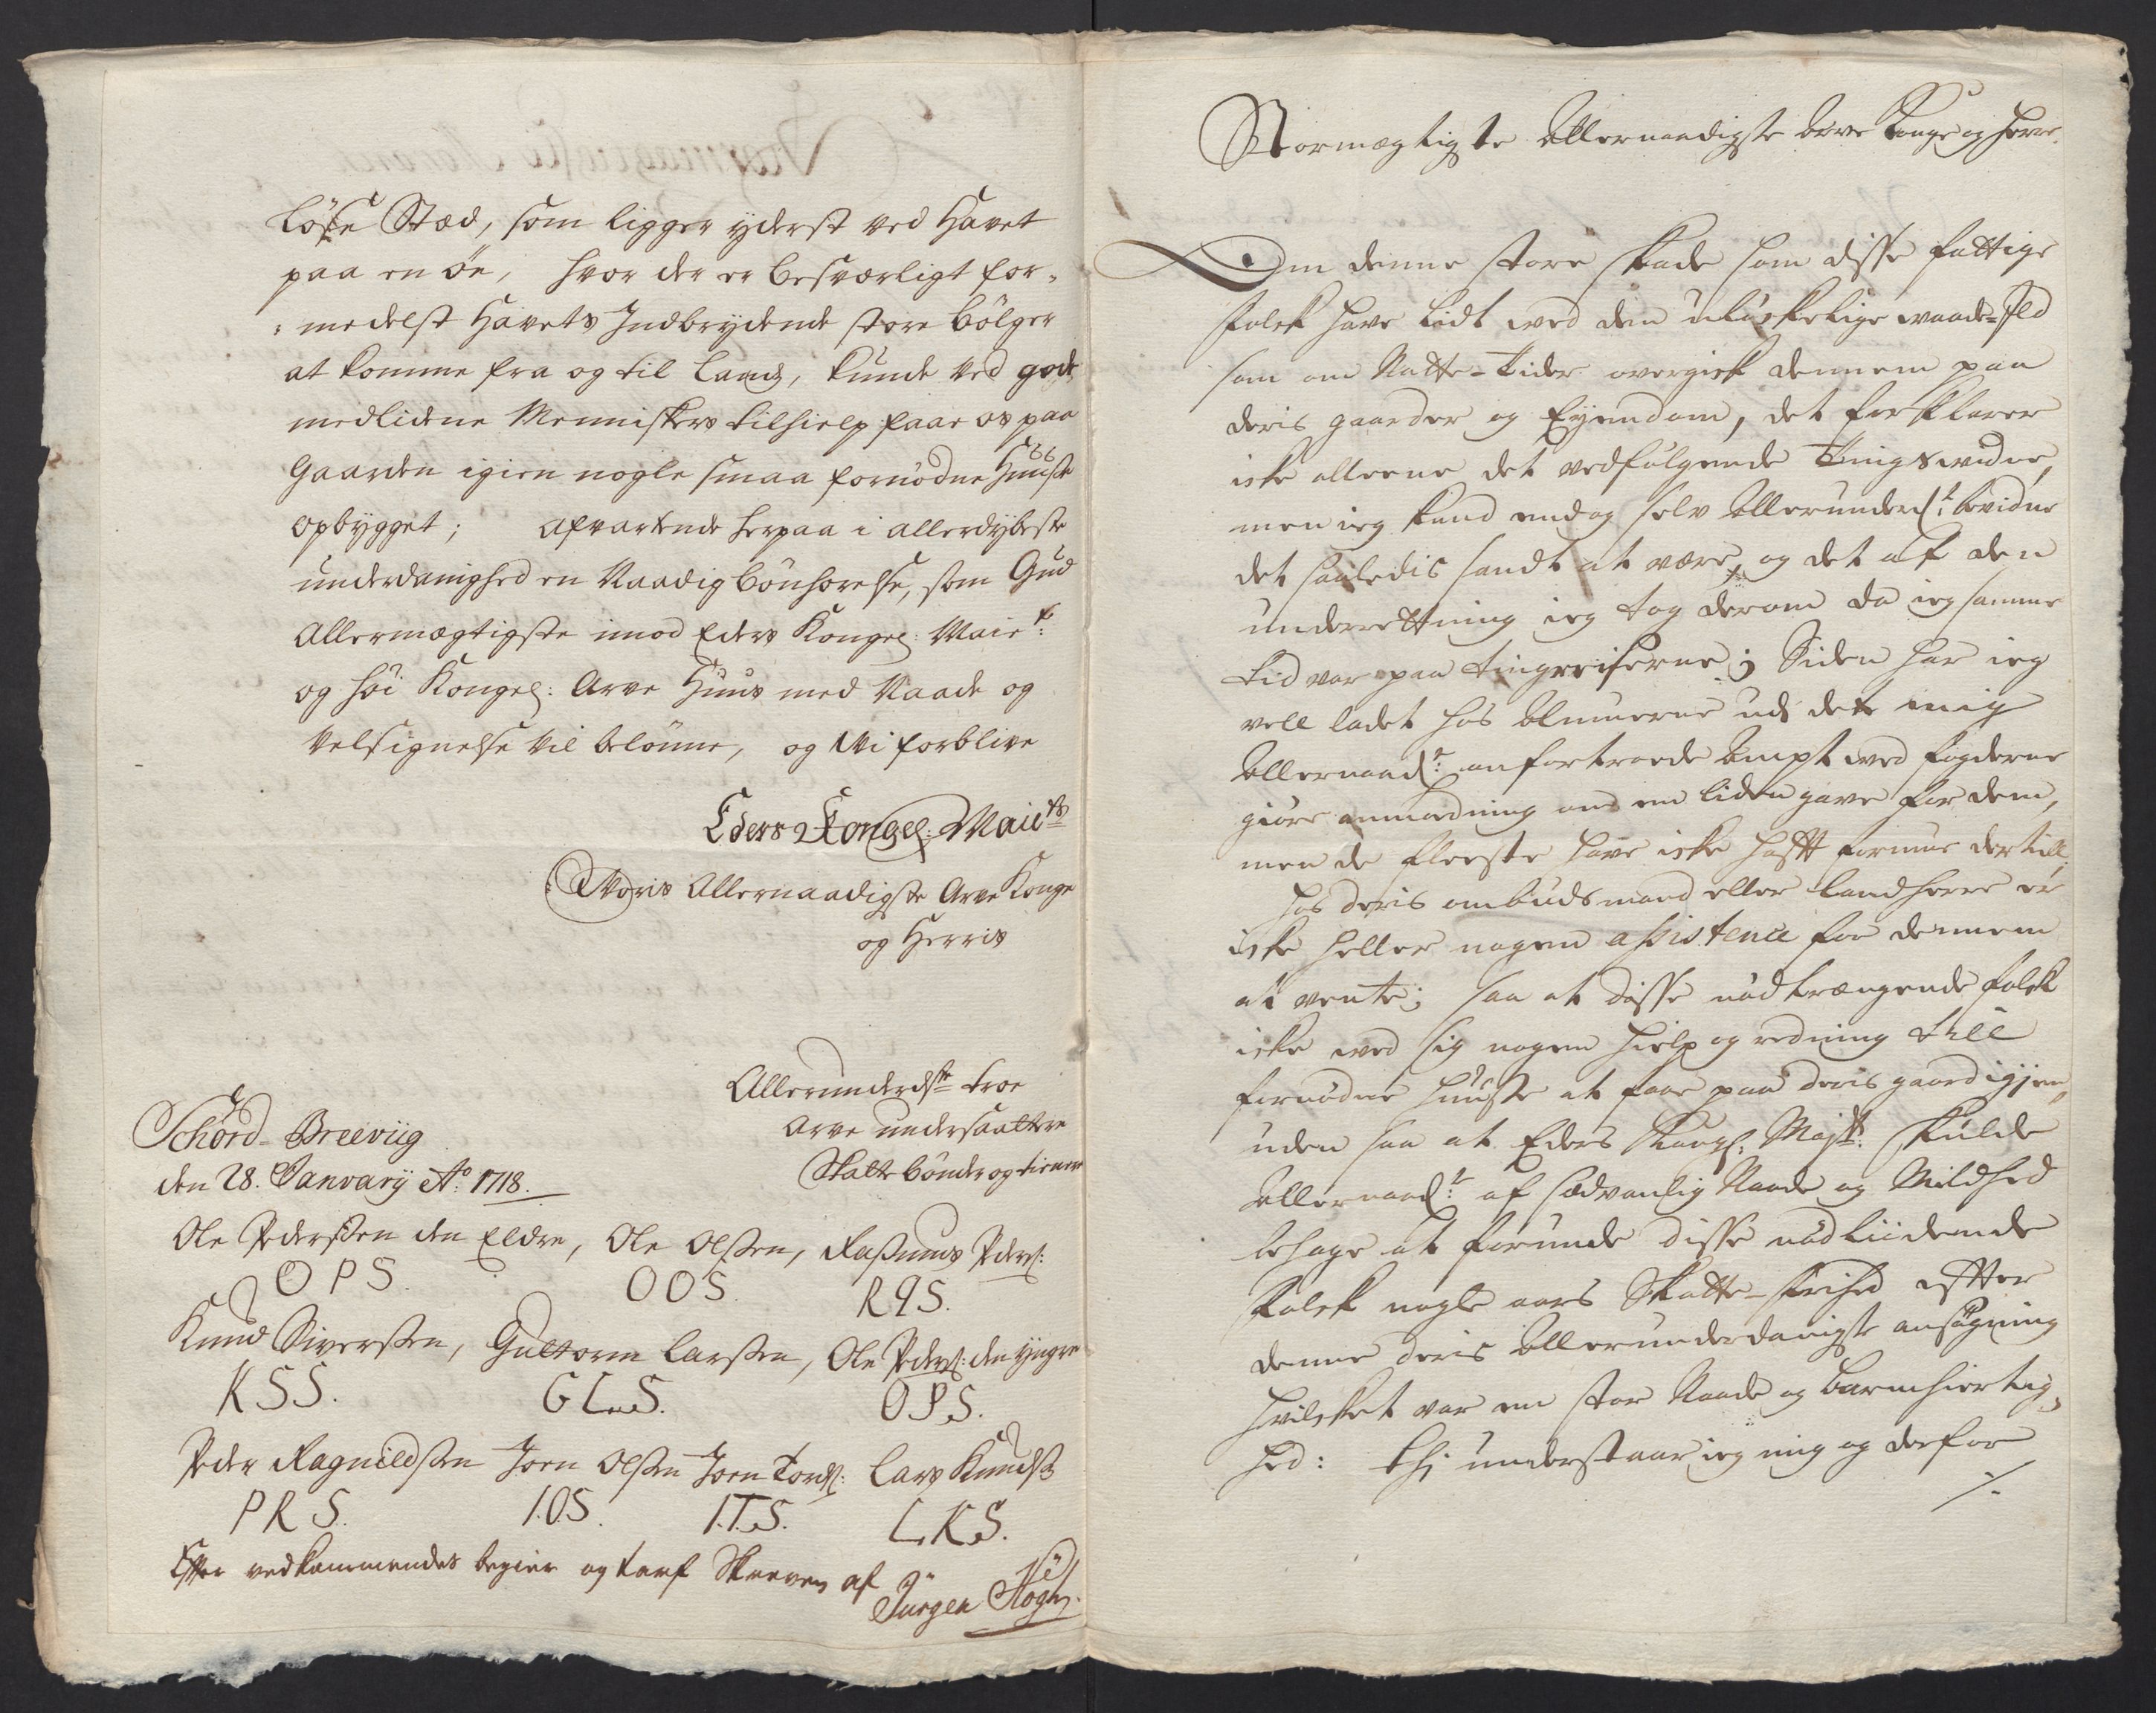 løse Stæd, som ligger yderst ved Havet
paa en öe, hvor der er besværligt for,,
,,medelst Havets Indbrydende store bölger
at komme fra og til Land, kunde ved gode
medlidene Menniskers tilhielp faae os paa
Gaarden igien nogle smaa fornödne Huuse
opbygget; Afvartende herpaa i allerdybeste
underdanighed en Naadig bönhörelse, som Gud
Allermægtigste imod Eders Kongel: Maiet:
og höi Kongel: Arve Huus med Naade og
Velsignelse vil belönne, og Vi forblive
Eders Kongel: Maiets
Voris Allernaadigste Arve Konge
og Herris
Allerunderdste troe
Arve undersaattere
Skatte bönder og tienere
Schord-Breeviig
den 28. Januarij Ao: 1718.
Ole Pederssen den Eldre, Ole Olssen, Rasmus Peders:
OPS. OOS. RPS.
Knud Siverssen, Guttorm Larssen, Ole Peders: den yngre
KSS. GLS. OPS.
Peder Ragnildssen Joen Olssen Joen Tords: Lars Knuds
PRS. I.O.S. I.T.S. L.K.S.
Efter vedkommendes begier og tarf Skreven af
Jürgen
Stormægtigste Allernaadigste Arve Konge og Herre
Om denne store skade som disse fattige
folck have lidt ved den ulyckelige vaade-Ild
som om Natte-tider overgick dennem paa
deris gaarder og Eyendom, det forklarer
icke alleene det vedfølgende Tingsvidne,
men ieg kand endog selv Allerunderd:t bevidne
det saaledis sandt at være, og det af den
underettning ieg tog derom da ieg samme
tid var paa tingreiserne; Siden har ieg
vell ladet hos Almuerne udi dete mig
Allernaad:t anfortroede Ampt ved fogderne
giöre anmodning om en liden gave for dem,
men de fleeste have icke hafft formue dertill,
hos deris ombudsmand eller landherre er
icke heller nogen assistence for dennem
at vente; saa at disse nödtrængende folck
icke ved sig nogen hielp og redning till
fornödne huuse at faae paa deris gaard igien,,
uden saa at Eders Kongl: Majt: skulde
Allernaad:t af sædvanlig Naade og Mildhed
behage at forunde disse nödliidende
folck nogle aars Skatte-frihed effter
denne deris Allerunderdanigste ansögning
hvilcket var en stor Naade og barmhiertig,,
hed: thi understaar ieg mig og derfor
./.